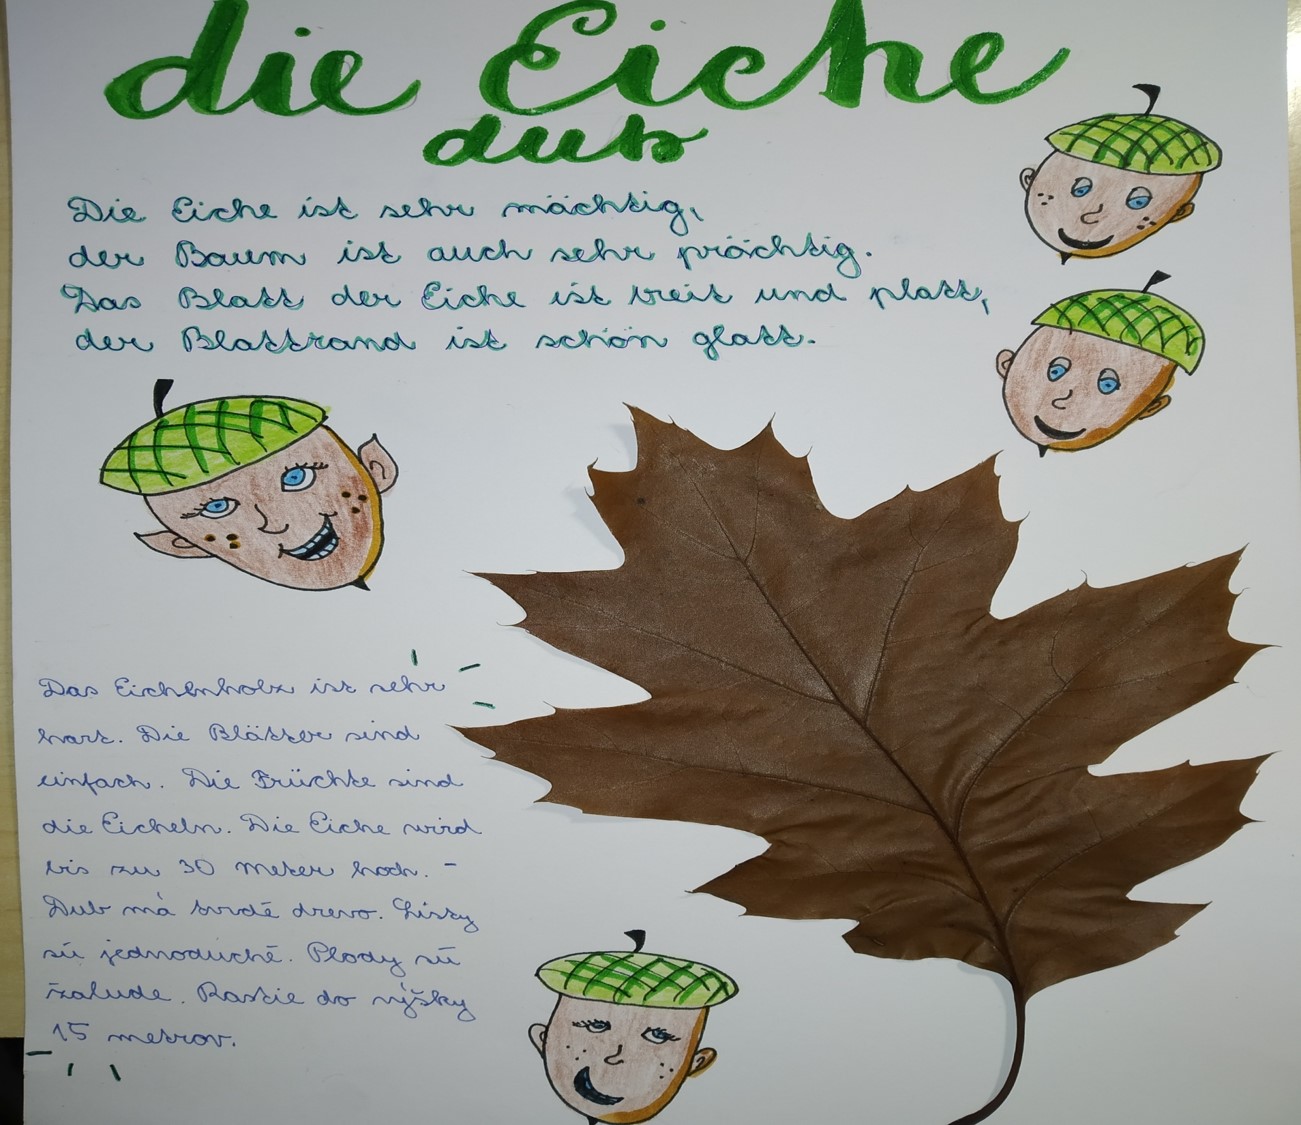 die Eiche
dub
Die Eiche ist sehr mächtig,
der Baum ist auch sehr prächtig.
Das Blatt der Eiche ist breit und platt,
der Blattrand ist schön glatt.
Das Eichenholz ist sehr
hart. Die Blätter sind
einfach. Die Früchte sind
die Eicheln. Die Eiche wird
bis zu 30 Meter hoch. -
Dub má tvrdé drevo. Listy
sú jednoduché. Plody sú
žalude. Rastie do výšky
15 metrov.